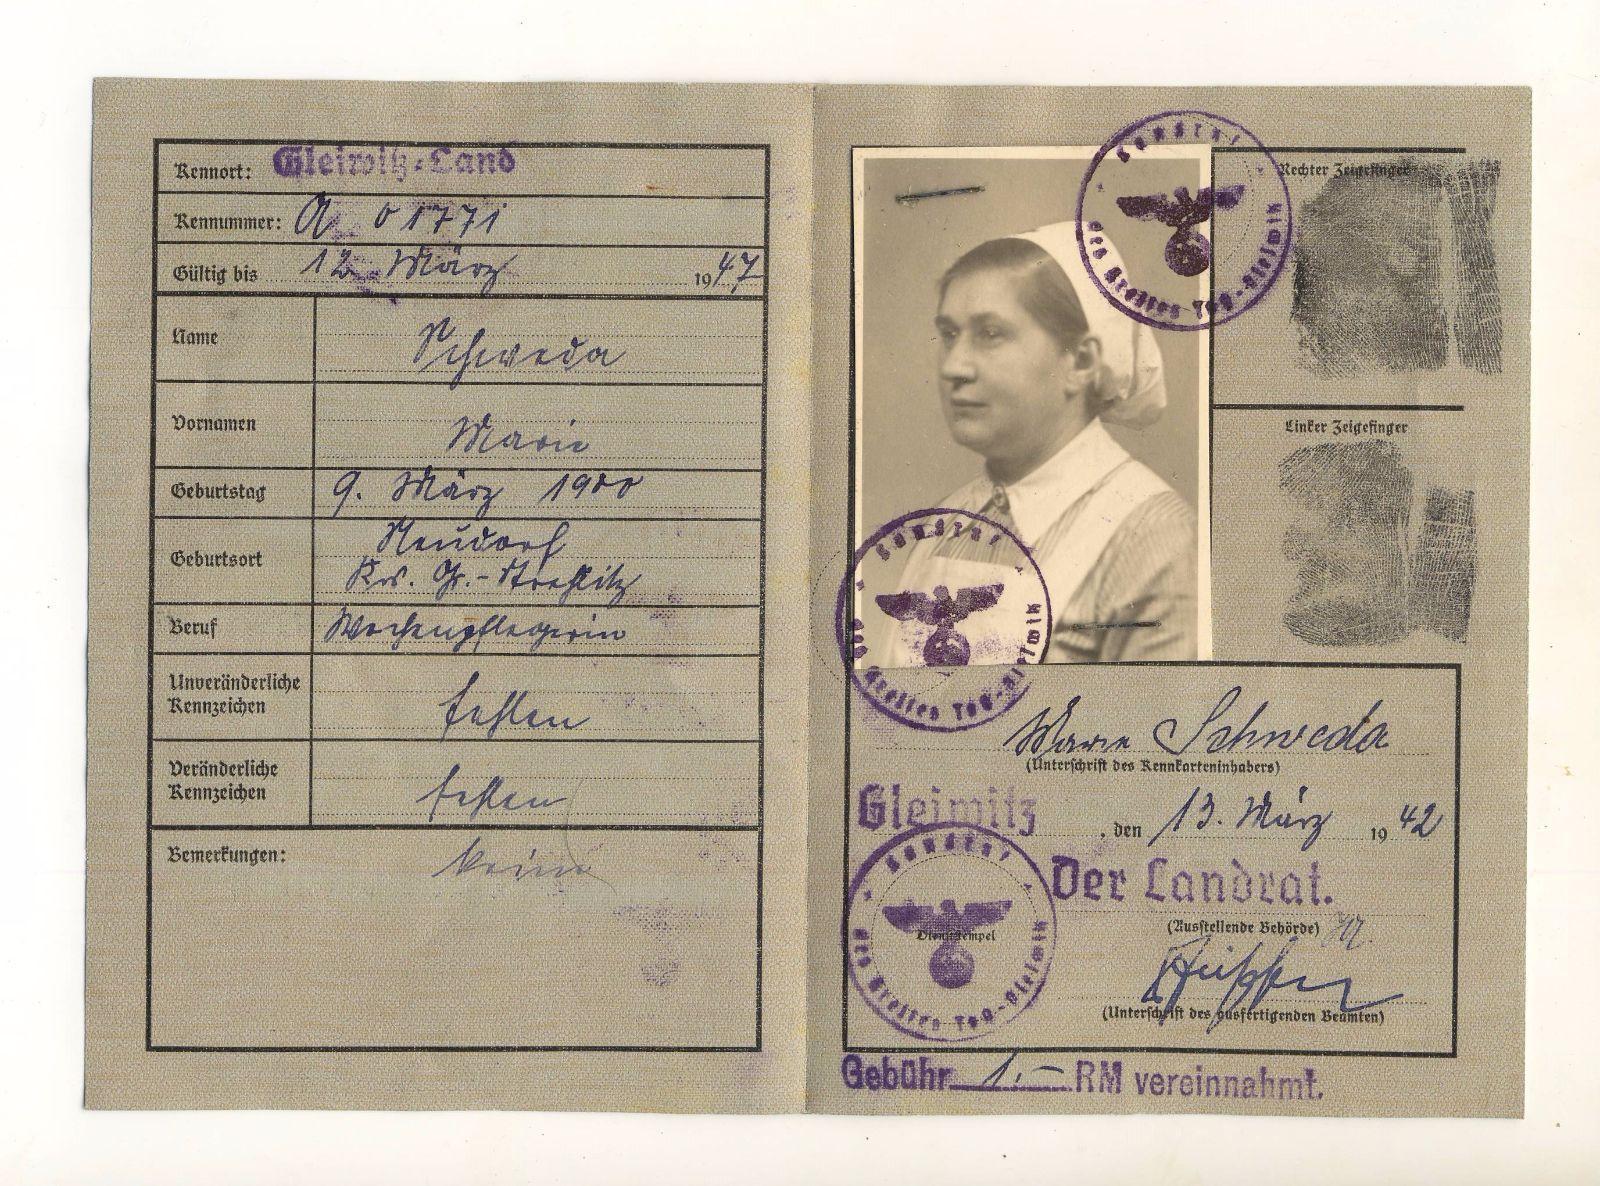 Kennort: Gleiwitz-Land
Kennummer: A 01771
Gültig bis 12. März 1947
Name Schweda
Vornamen Marie
Geburtstag 9. März 1900
Geburtsort Neudorf
Krs. Gr.-Strehlitz
Beruf Wochenpflegerin
Unveränderliche Kennzeichen fehlen
Veränderliche Kennzeichen fehlen
Bemerkungen: keine
Landrat des Kreises Tost-Gleiwitz
Rechter Zeigefinger
Linker Zeigefinger
Landrat des Kreises Tost-Gleiwitz
Marie Schweda
(Unterschrift des Kennkarteninhabers)
Gleiwitz, den 13. März 1942
Landrat des Kreises Tost-Gleiwitz
Dienststempel
Der Landrat.
(Ausstellende Behörde)
(Unterschrift des ausfertigenden Beamten)
Gebühr 1.- RM vereinnahmt.